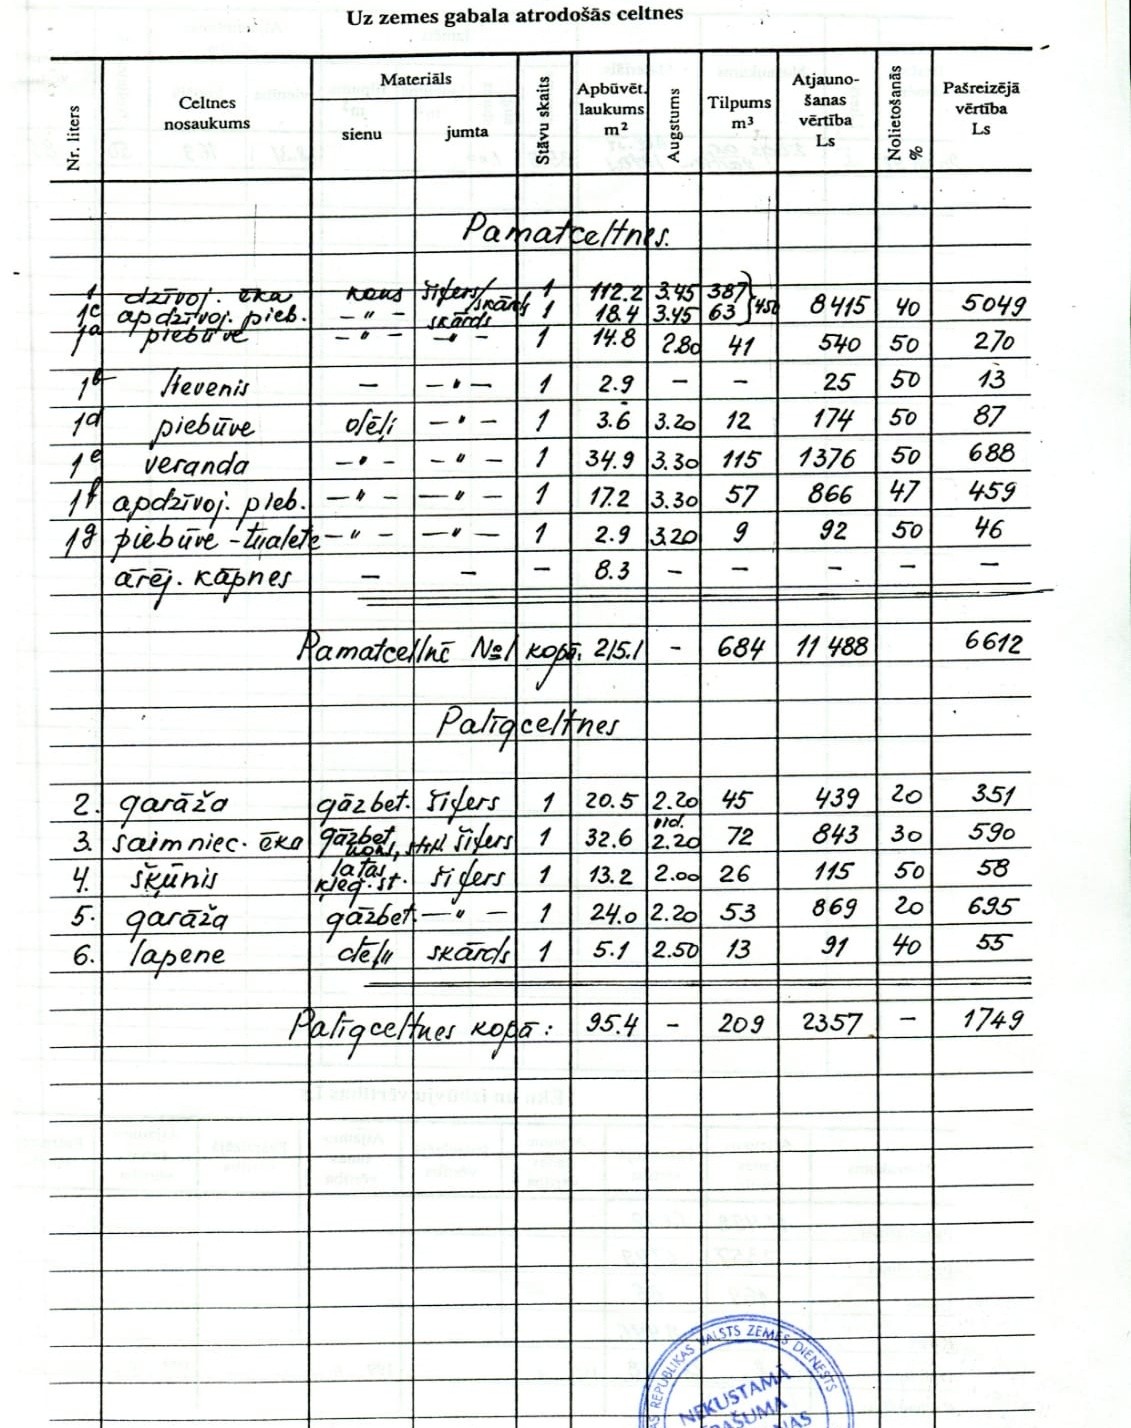 Uz zemes gabala atrodošās celtnes
Nr. liters | Celtnes nosaukums | Materiāls sienu | Materiāls jumta | Stāvu skaits | Apbūvēt. laukums m² | Augstums | Tilpums m³ | Atjauno-šanas vērtība Ls | Nolietošanās % | Pašreizējā vērtība Ls
Pamatceltnes.
1 dzīvoj. ēka koks šīfers/skārds 1 112.2 3.45 387
1c apdzīvoj. pieb. –"– skārds 1 18.4 3.45 63 } 450 8415 40 5049
1a piebūve –"– –"– 1 14.8 2.80 41 540 50 270
1b lievenis – –"– 1 2.9 – – 25 50 13
1d piebūve dēļi –"– 1 3.6 3.20 12 174 50 87
1e veranda –"– –"– 1 34.9 3.30 115 1376 50 688
1f apdzīvoj. pieb. –"– –"– 1 17.2 3.30 57 866 47 459
1g piebūve-tualete –"– –"– 1 2.9 3.20 9 92 50 46
ārēj. kāpnes – – – 8.3 – – – – –
Pamatceltnē №1 kopā: 215.1 – 684 11 488 6612
Palīgceltnes
2. garāža gāzbet. šīfers 1 20.5 2.20 45 439 20 351
3. saimniec. ēka gāzbet. koks, šīfers 1 32.6 vid. 2.20 72 843 30 590
4. šķūnis latas ķieg. st. šīfers 1 13.2 2.00 26 115 50 58
5. garāža gāzbet. –"– 1 24.0 2.20 53 869 20 695
6. lapene dēļu skārds 1 5.1 2.50 13 91 40 55
Palīgceltnes kopā: 95.4 – 209 2357 – 1749
REPUBLIKAS VALSTS ZEMES DIENESTS
NEKUSTAMĀ